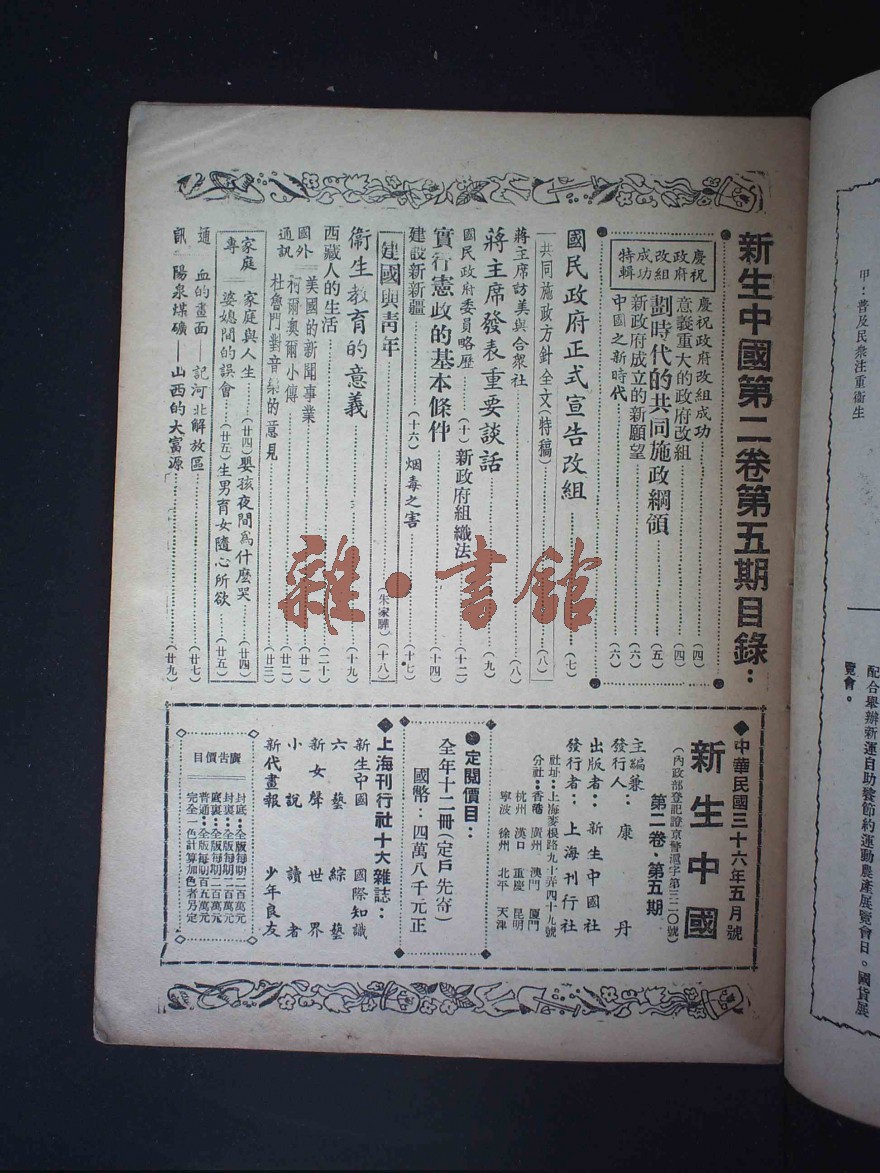 新生中國第二卷第五期目錄：
慶祝政府改組成功特輯
慶祝政府改組成功……（四）
意義重大的政府改組……（四）
劃時代的共同施政綱領……（五）
新政府成立的新願望……（六）
中國之新時代……（六）
國民政府正式宣告改組……（七）
共同施政方針全文（特稿）……（八）
蔣主席訪美與合衆社……（八）
蔣主席發表重要談話……（九）
國民政府委員略歷……（十）新政府組織法……（十二）
實行憲政的基本條件……（十四）
建設新新疆……（十六）烟毒之害……（十七）
建國與青年……（朱家驊）（十八）
衞生教育的意義……（十九）
西藏人的生活……（二十）
國外通訊
美國的新聞事業……（廿一）
柯爾奧爾小傳……（廿二）
杜魯門對音樂的意見……（廿三）
家庭專
家庭與人生……（廿四）嬰孩夜間爲什麼哭……（廿四）
婆媳間的誤會……（廿五）生男育女隨心所欲……（廿五）
通訊
血的畫面——記河北解放區……（廿七）
陽泉煤礦——山西的大富源……（廿九）
中華民國三十六年五月號
新生中國
（內政部登記證京警滬字第三二〇號）
第二卷・第五期
主編兼發行人：康丹
出版者：新生中國社
發行者：上海刊行社
社址：上海麥根路九十弄四十九號
分社：香港 廣州 澳門 厦門
杭州 漢口 重慶 昆明
寧波 徐州 北平 天津
定閱價目：
全年十二冊（定戶先寄）
國幣：四萬八千元正
上海刊行社十大雜誌：
新生中國 國際知識
六藝 綜藝
新女聲 世界
小說 讀者
新代畫報 少年良友
廣告價目
封底：全版每期三百萬元
封裏：全版每期二百萬元
底裏：全版每期二百萬元
普通：全版每期百五萬元
完全一色計算加色者另定
甲：普及民衆注重衞生
配合舉辦新運自助餐節約運動農產展覽會日。國貨展
覽會。
雜・書館